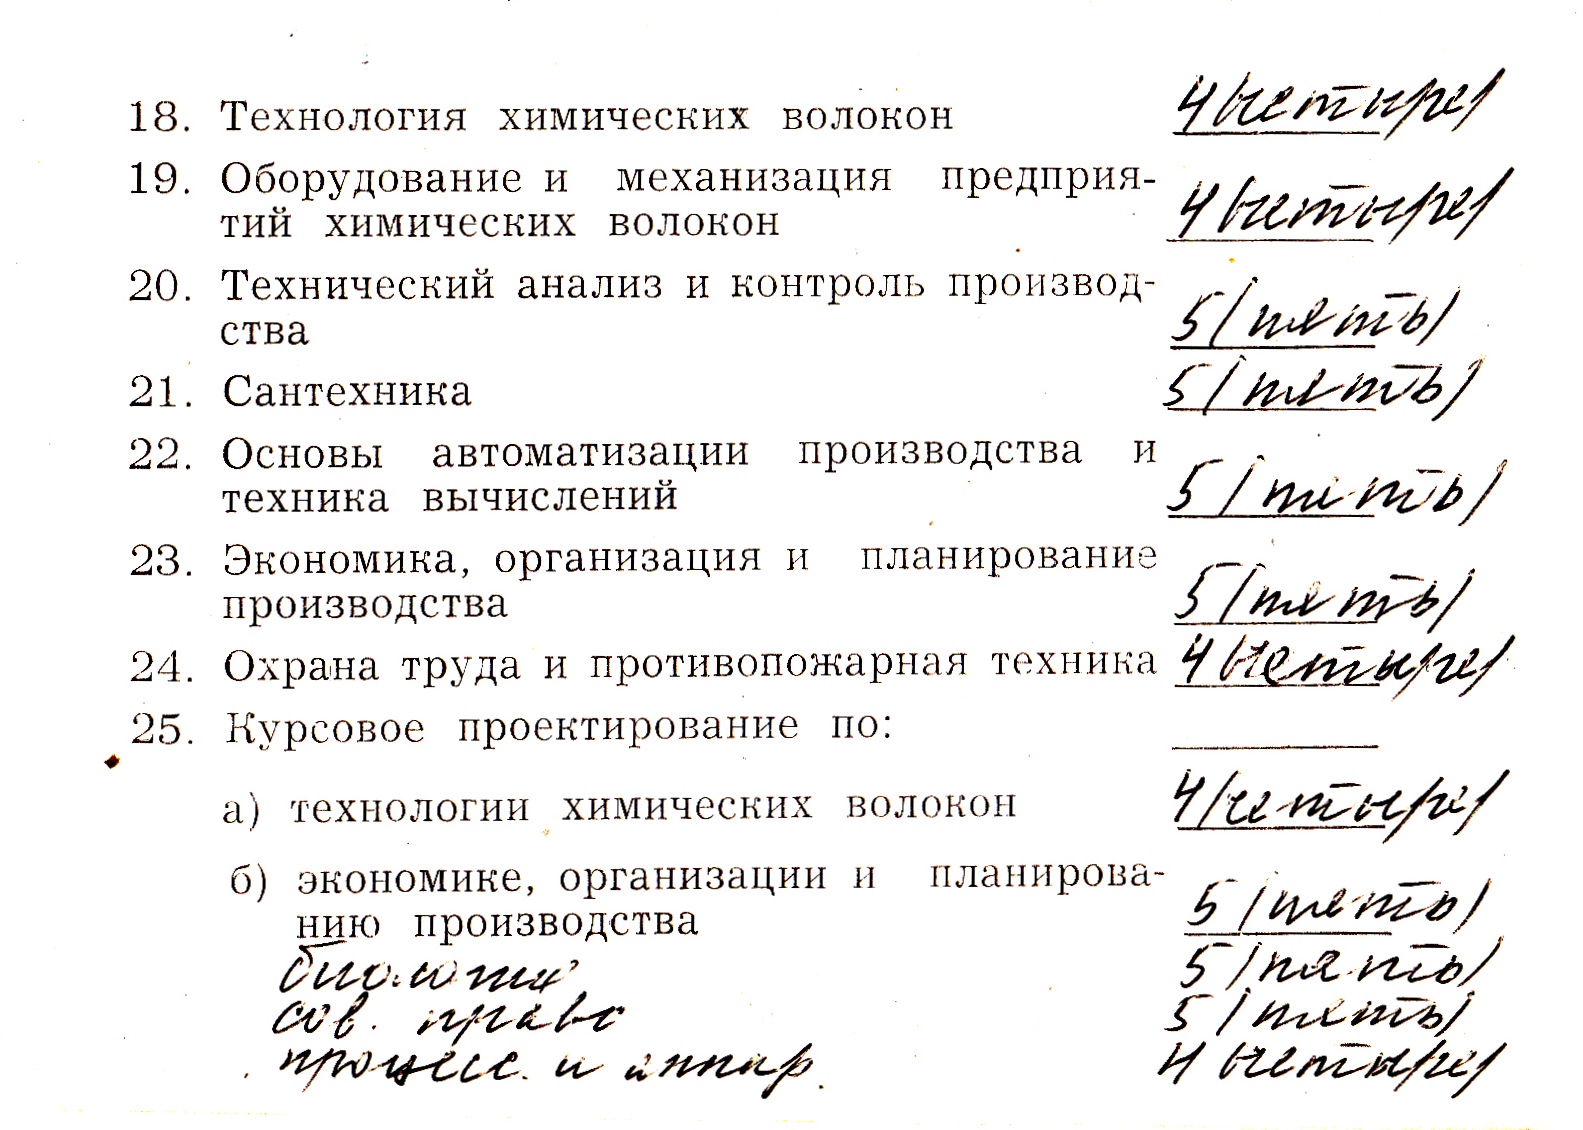 18. Технология химических волокон 4 /четыре/
19. Оборудование и механизация предприя-
тий химических волокон 4 /четыре/
20. Технический анализ и контроль производ-
ства 5 /пять/
21. Сантехника 5 /пять/
22. Основы автоматизации производства и
техника вычислений 5 /пять/
23. Экономика, организация и планирование
производства 5 /пять/
24. Охрана труда и противопожарная техника 4 /четыре/
25. Курсовое проектирование по:
а) технологии химических волокон 4 /четыре/
б) экономике, организации и планирова-
нию производства 5 /пять/
биология 5 /пять/
сов. право 5 /пять/
процесс. и аппар. 4 /четыре/